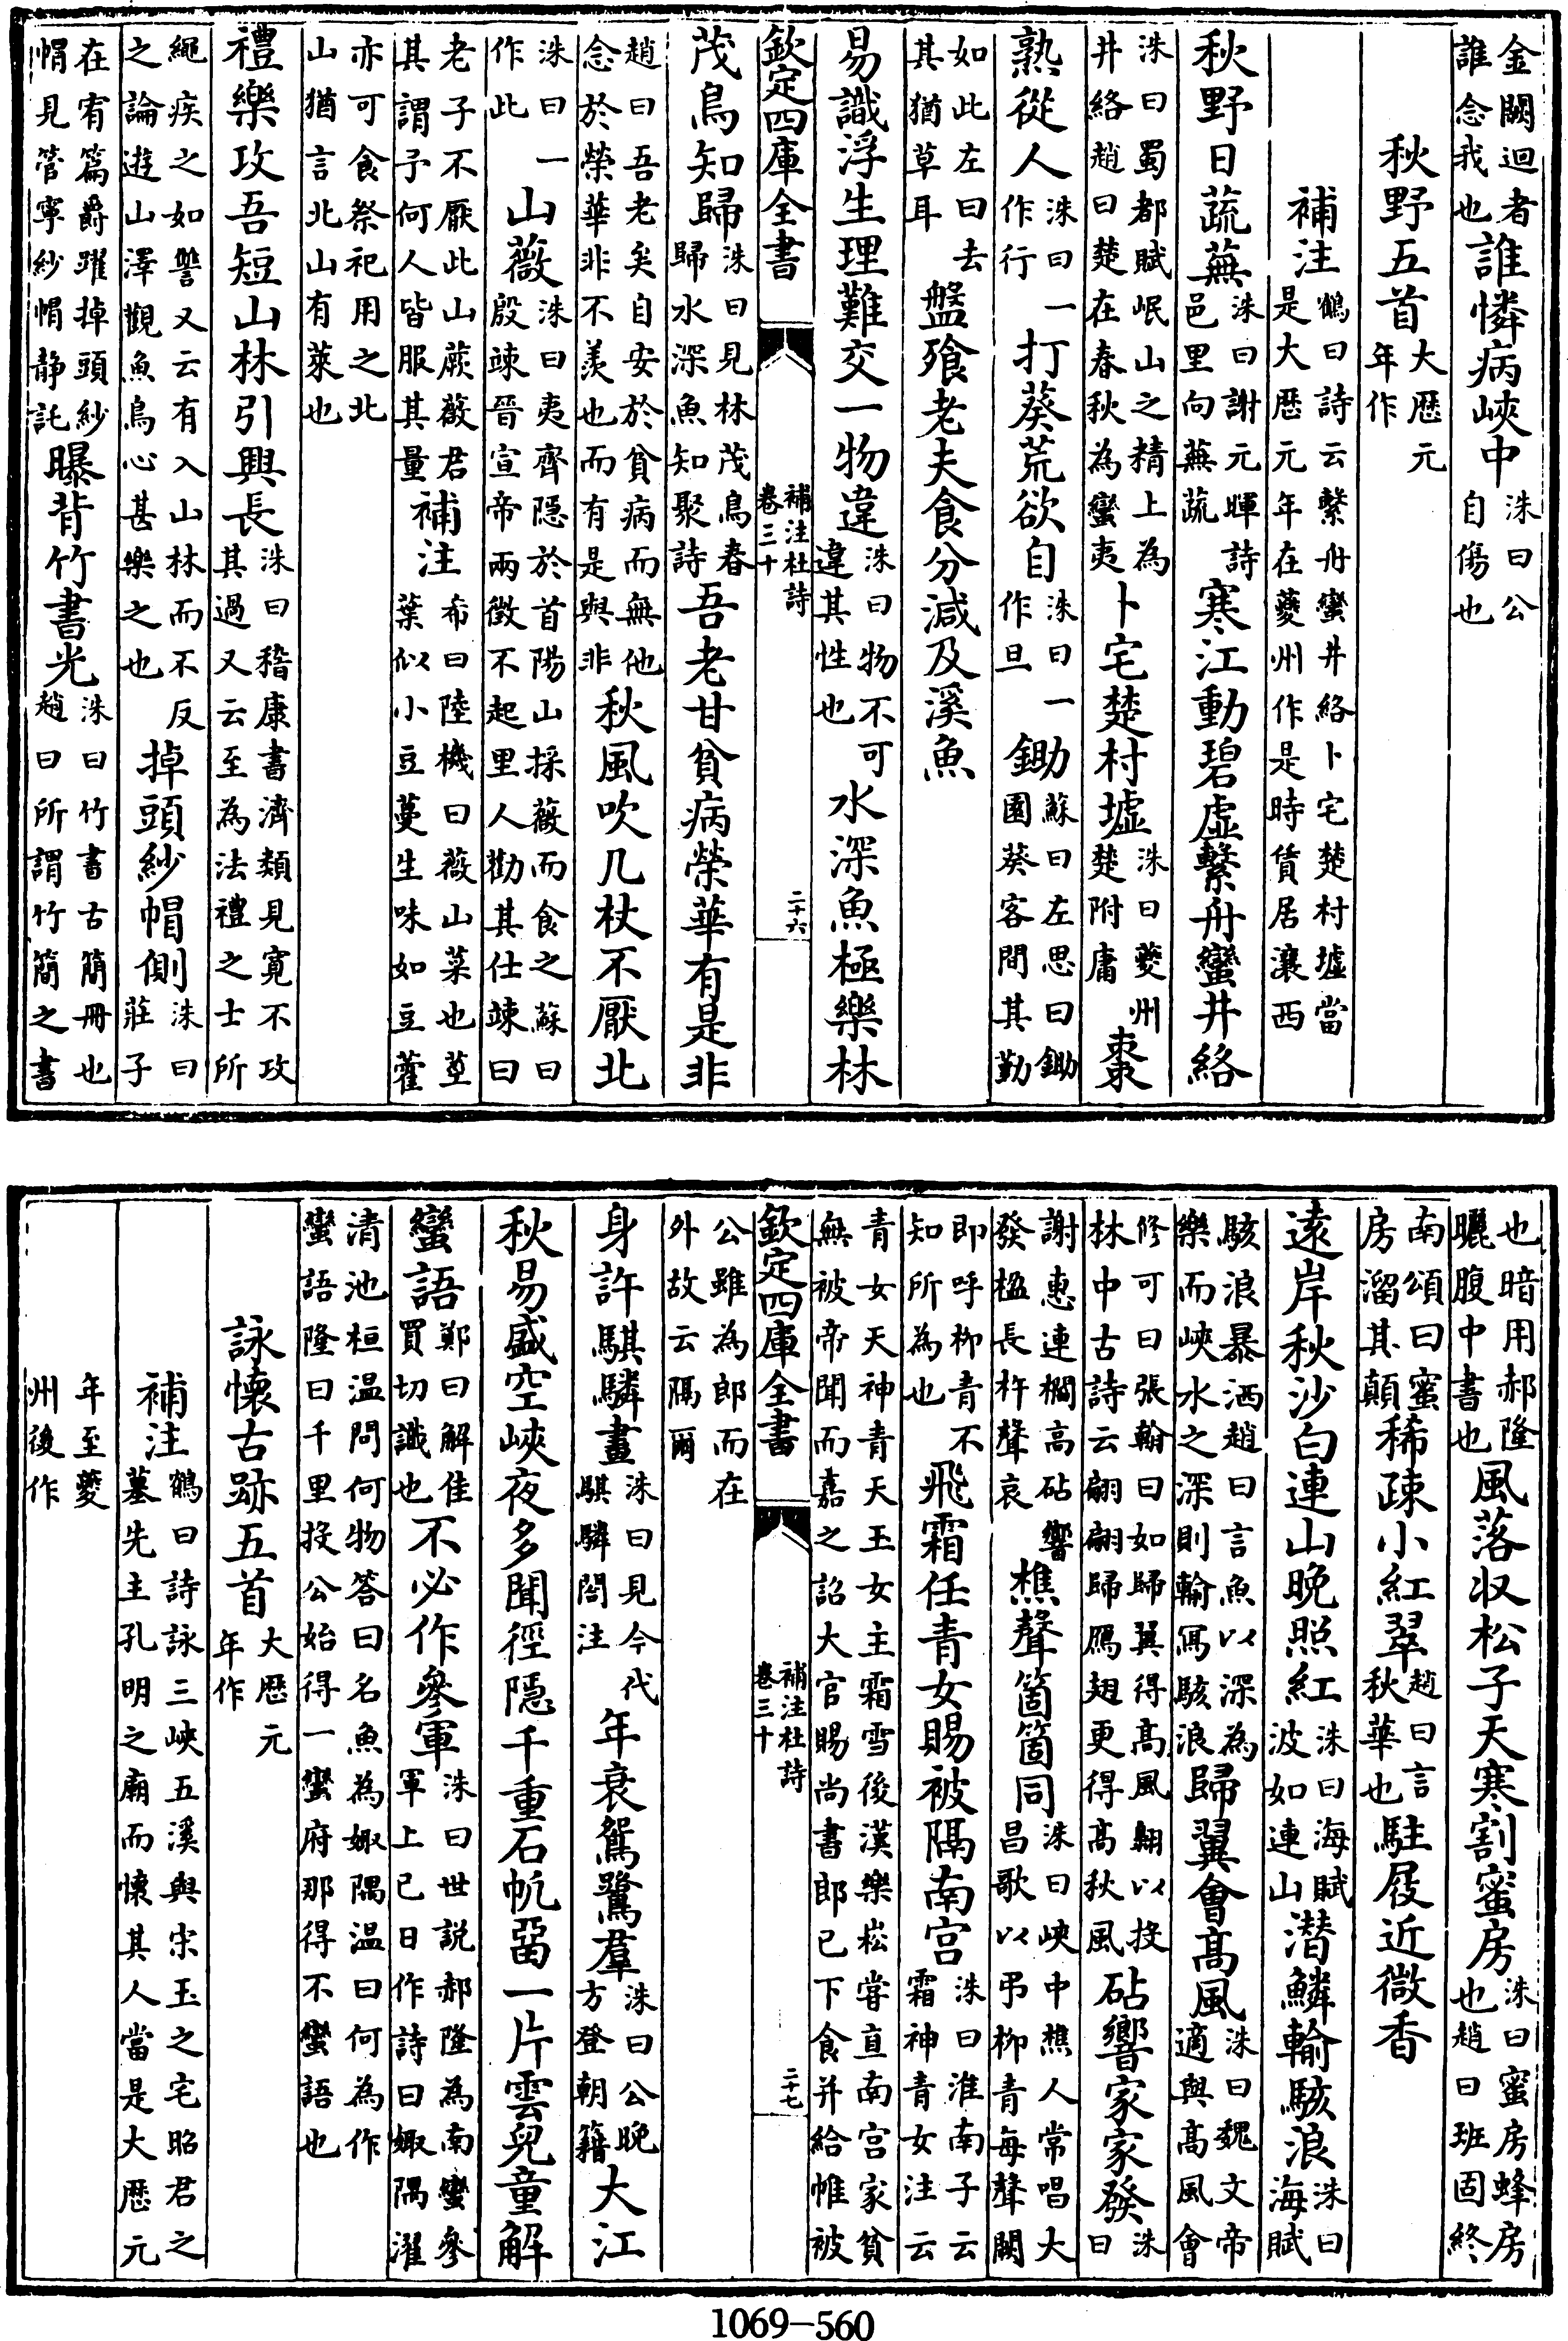 金闕迴者誰念我也誰憐病峽中洙曰公自傷也
秋野五首大歴元年作
補注鶴曰詩云繫舟蠻井絡卜宅楚村墟當是大歴元年在夔州作是時賃居瀼西
秋野日蔬蕪洙曰謝元暉詩邑里向蕪蔬寒江動碧虚繫舟蠻井絡
洙曰蜀都賦岷山之精上為井絡趙曰楚在春秋為蠻夷卜宅楚村墟洙曰夔州楚附庸棗
熟從人洙曰一作行打葵荒欲自洙曰一作旦鋤蘇曰左思曰鋤園葵客間其勤
如此左曰去其猶草耳盤飱老夫食分減及溪魚
易識浮生理難交一物違洙曰物不可違其性也水深魚極樂林
欽定四庫全書 補注杜詩卷三十 二十六
茂鳥知歸洙曰見林茂鳥春歸水深魚知聚詩吾老甘貧病榮華有是非
趙曰吾老矣自安於貧病而無他念於榮華非不羨也而有是與非秋風吹几杖不厭北
洙曰一作此山薇洙曰夷齊隱於首陽山採薇而食之蘇曰殷竦晉宣帝兩徵不起里人勸其仕竦曰
老子不厭此山蕨薇君其謂予何人皆服其量補注希曰陸機曰薇山菜也莖葉似小豆蔓生味如豆藿
亦可食祭祀用之北山猶言北山有萊也
禮樂攻吾短山林引興長洙曰稽康書濟類見寛不攻其過又云至為法禮之士所
繩疾之如讐又云有入山林而不反之論遊山澤觀魚鳥心甚樂之也掉頭紗帽側洙曰莊子
在宥篇爵躍掉頭紗帽見管寧紗帽静託曝背竹書光洙曰竹書古簡冊也趙曰所謂竹簡之書
也暗用郝隆曬腹中書也風落収松子天寒割蜜房洙曰蜜房蜂房也趙曰班固終
南頌曰蜜房溜其顛稀疎小紅翠趙曰言秋華也駐屐近微香
遠岸秋沙白連山晚照紅洙曰海賦波如連山潜鱗輸駭浪洙曰海賦
駭浪暴洒趙曰言魚以深為樂而峽水之深則輸寫駭浪歸翼會髙風洙曰魏文帝適與髙風會
修可曰張翰曰如歸翼得髙風翱以投林中古詩云翩翩歸鴈翅更得髙秋風砧響家家發洙曰
謝惠連櫩高砧響發楹長杵聲哀樵聲箇箇同洙曰峽中樵人常唱大昌歌以弔柳青每聲闋
即呼柳青不知所為也飛霜任青女賜被隔南宫洙曰淮南子云霜神青女注云
青女天神青天玉女主霜雪後漢樂崧嘗直南宫家貧無被帝聞而嘉之詔大官賜尚書郎已下食并給帷被
欽定四庫全書 補注杜詩卷三十 二十七
公雖為郎而在外故云隔爾
身許騏驎畫洙曰見今代騏驎閣注年衰鴛鷺羣洙曰公晚方登朝籍大江
秋易盛空峽夜多聞徑隱千重石帆留一片雲兒童解
蠻語鄭曰解佳買切識也不必作參軍洙曰世説郝隆為南蠻參軍上已日作詩曰娵隅濯
清池桓温問何物答曰名魚為娵隅温曰何為作蠻語隆曰千里投公始得一蠻府那得不蠻語也
詠懷古跡五首大歴元年作
補注鶴曰詩詠三峽五溪與宋玉之宅昭君之墓先主孔明之廟而懷其人當是大歴元
年至夔州後作
1069-560